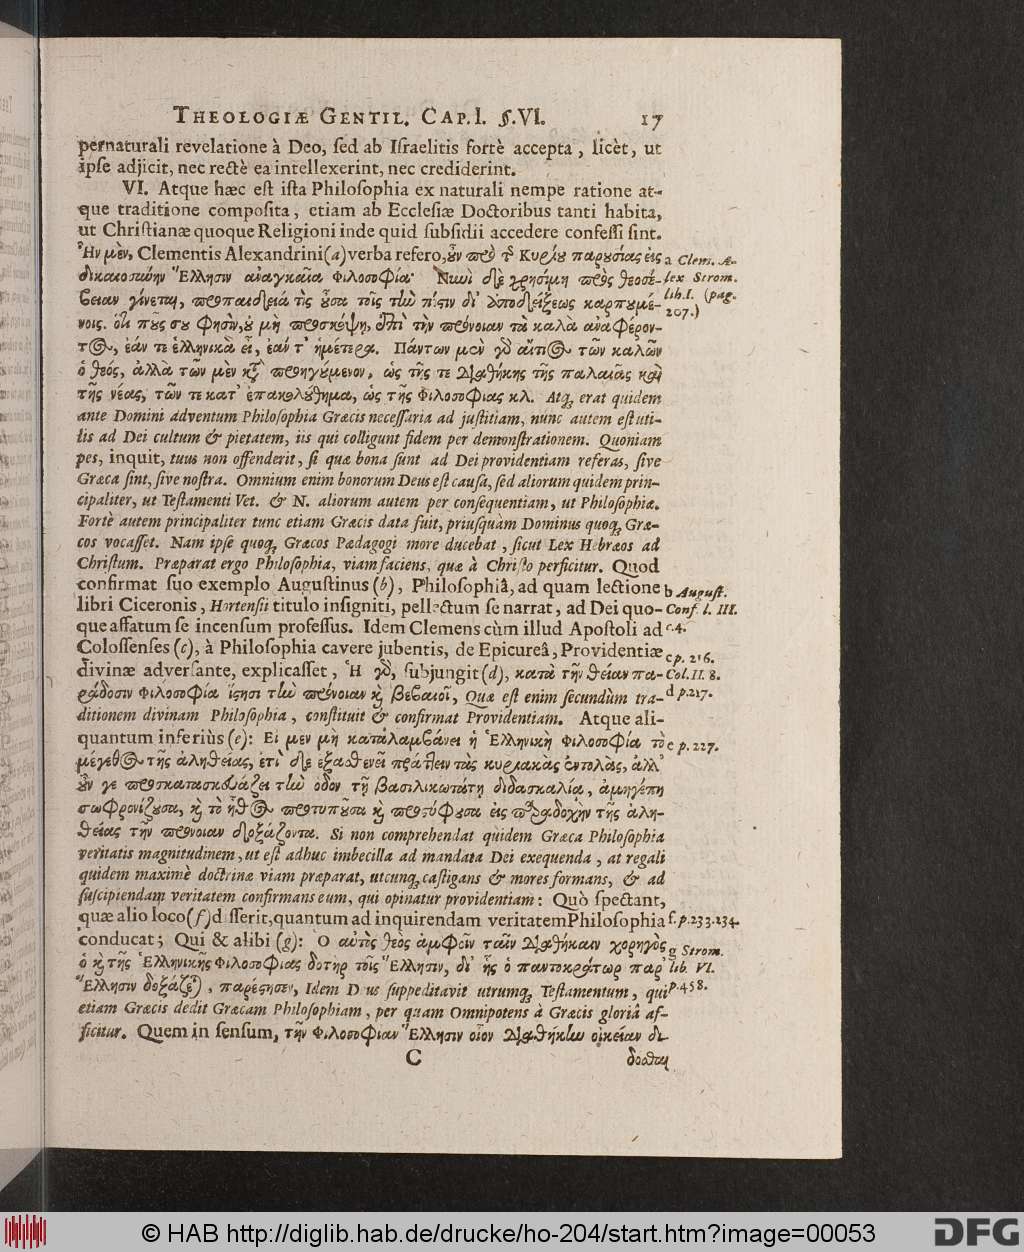 THEOLOGIÆ GENTIL. CAP. I. §. VI. 17
pernaturali revelatione à Deo, ſed ab Iſraelitis fortè accepta, licèt, ut
ipſe adjicit, nec rectè ea intellexerint, nec crediderint.
VI. Atque hæc eſt iſta Philoſophia ex naturali nempe ratione at-
que traditione compoſita, etiam ab Eccleſiæ Doctoribus tanti habita,
ut Chriſtianæ quoque Religioni inde quid ſubſidii accedere confeſſi ſint.
Ἦν μὲν, Clementis Alexandrini (a) verba refero, ἦν πρὸ τῆς Κυρίου παρουσίας εἰς
δικαιοσύνην Ἕλλησιν ἀναγκαῖα φιλοσοφία· Νυνὶ δὲ χρησίμη πρὸς θεοσέ-
βειαν γίνεται, προπαιδεία τὶς οὖσα τοῖς τὴν πίστιν δι' ἀποδείξεως καρπουμέ-
νοις. ὅτι ποῦς σου φησὶν, οὐ μὴ προσκόψῃ, ἐπὶ τὴν πρόνοιαν τὰ καλὰ ἀναφέρον-
τος, ἐάν τε ἑλληνικὰ εἶ, ἐάν τ' ἡμέτερα. Πάντων μὲν γὸ αἴτιος τῶν καλῶν
ὁ θεός, ἀλλὰ τῶν μὲν κατὰ προηγούμενον, ὡς τῆς τε Διαθήκης τῆς παλαιᾶς καὶ
τῆς νέας, τῶν τε κατ' ἐπακολούθημα, ὡς τῆς φιλοσοφίας κλ. Atq; erat quidem
ante Domini adventum Philoſophia Græcis neceſſaria ad juſtitiam, nunc autem eſt uti-
lis ad Dei cultum & pietatem, iis qui colligunt fidem per demonſtrationem. Quoniam
pes, inquit, tuus non offenderit, ſi quæ bona ſunt ad Dei providentiam referas, ſive
Græca ſint, ſive noſtra. Omnium enim bonorum Deus eſt cauſa, ſed aliorum quidem prin-
cipaliter, ut Teſtamenti Vet. & N. aliorum autem per conſequentiam, ut Philoſophiæ.
Fortè autem principaliter tunc etiam Græcis data fuit, priuſquàm Dominus quoq; Græ-
cos vocaſſet. Nam ipſe quoq; Græcos Pædagogi more ducebat, ſicut Lex Hebræos ad
Chriſtum. Præparat ergo Philoſophia, viam faciens, quæ à Chriſto perficitur. Quod
confirmat ſuo exemplo Auguſtinus (b), Philoſophiâ, ad quam lectione
libri Ciceronis, Hortenſii titulo inſigniti, pellectum ſe narrat, ad Dei quo-
que affatum ſe incenſum profeſſus. Idem Clemens cùm illud Apoſtoli ad
Coloſſenſes (c), à Philoſophia cavere jubentis, de Epicureâ, Providentiæ
divinæ adverſante, explicaſſet, Ἡ γὸ, ſubjungit (d), κατὰ τὴν θείαν πα-
ράδοσιν φιλοσοφία ἵστησι τὴν πρόνοιαν κὶ βεβαιοῖ, Quæ eſt enim ſecundùm tra-
ditionem divinam Philoſophia, conſtituit & confirmat Providentiam. Atque ali-
quantum inferiùs (e): Εἰ μεν μὴ καταλαμβάνει ἡ Ἑλληνικὴ φιλοσοφία τὸ
μέγεθος τῆς ἀληθείας, ἐτι δὲ ἐξασθενεῖ πράττειν τὰς κυριακὰς ἐντολὰς, ἀλλ'
οὖν γε προσκατασκευάζει τὴν ὁδον τῇ βασιλικωτάτῃ διδασκαλίᾳ, ἀμηγέπη
σωφρονίζουσα, κὶ τὸ ἦθος προτυποῦσα κὶ προστύφουσα εἰς παραδοχὴν τῆς ἀλη-
θείας τὴν πρόνοιαν δοξάζοντα. Si non comprehendat quidem Græca Philoſophia
veritatis magnitudinem, ut eſt adhuc imbecilla ad mandata Dei exequenda, at regali
quidem maximè doctrinæ viam præparat, utcunq; caſtigans & mores formans, & ad
ſuſcipiendam veritatem confirmans eum, qui opinatur providentiam: Quò ſpectant,
quæ alio loco (f) diſſerit, quantum ad inquirendam veritatem Philoſophia
conducat; Qui & alibi (g): Ὁ αὐτὸς θεὸς ἀμφοῖν ταῖν Διαθήκαιν χορηγὸς
ὁ κὶ τῆς Ἑλληνικῆς φιλοσοφίας δοτηρ τοῖς Ἕλλησιν, δι' ἧς ὁ παντοκράτωρ παρ'
Ἕλλησιν δοξάζεται, παρέστησεν, Idem Deus ſuppeditavit utrumq; Teſtamentum, qui
etiam Græcis dedit Græcam Philoſophiam, per quam Omnipotens à Græcis gloriâ af-
ficitur. Quem in ſenſum, τὴν φιλοσοφίαν Ἕλλησιν οἷον Διαθήκην οἰκείαν δε-
C δοσθαι
a Clem. A-
lex Strom.
lib. I. (pag.
207.)
b Auguſt.
Conf. l. III.
c. 4.
c p. 216.
Col. II. 8.
d p. 217.
e p. 227.
f. p. 233. 234.
g Strom.
lib. VI.
p. 458.
© HAB http://diglib.hab.de/drucke/ho-204/start.htm?image=00053
DFG